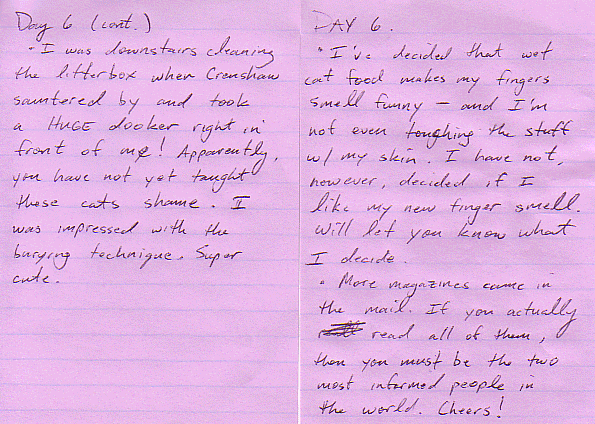 Day 6 (cont.)
• I was downstairs cleaning
the litterbox when Crenshaw
sauntered by and took
a HUGE dooker right in
front of me! Apparently,
you have not yet taught
those cats shame. I
was impressed with the
burying technique. Super
cute.
DAY 6.
• I've decided that wet
cat food makes my fingers
smell funny — and I'm
not even touching the stuff
w/ my skin. I have not,
however, decided if I
like my new finger smell.
Will let you know what
I decide.
• More magazines came in
the mail. If you actually
read all of them,
then you must be the two
most informed people in
the world. Cheers!